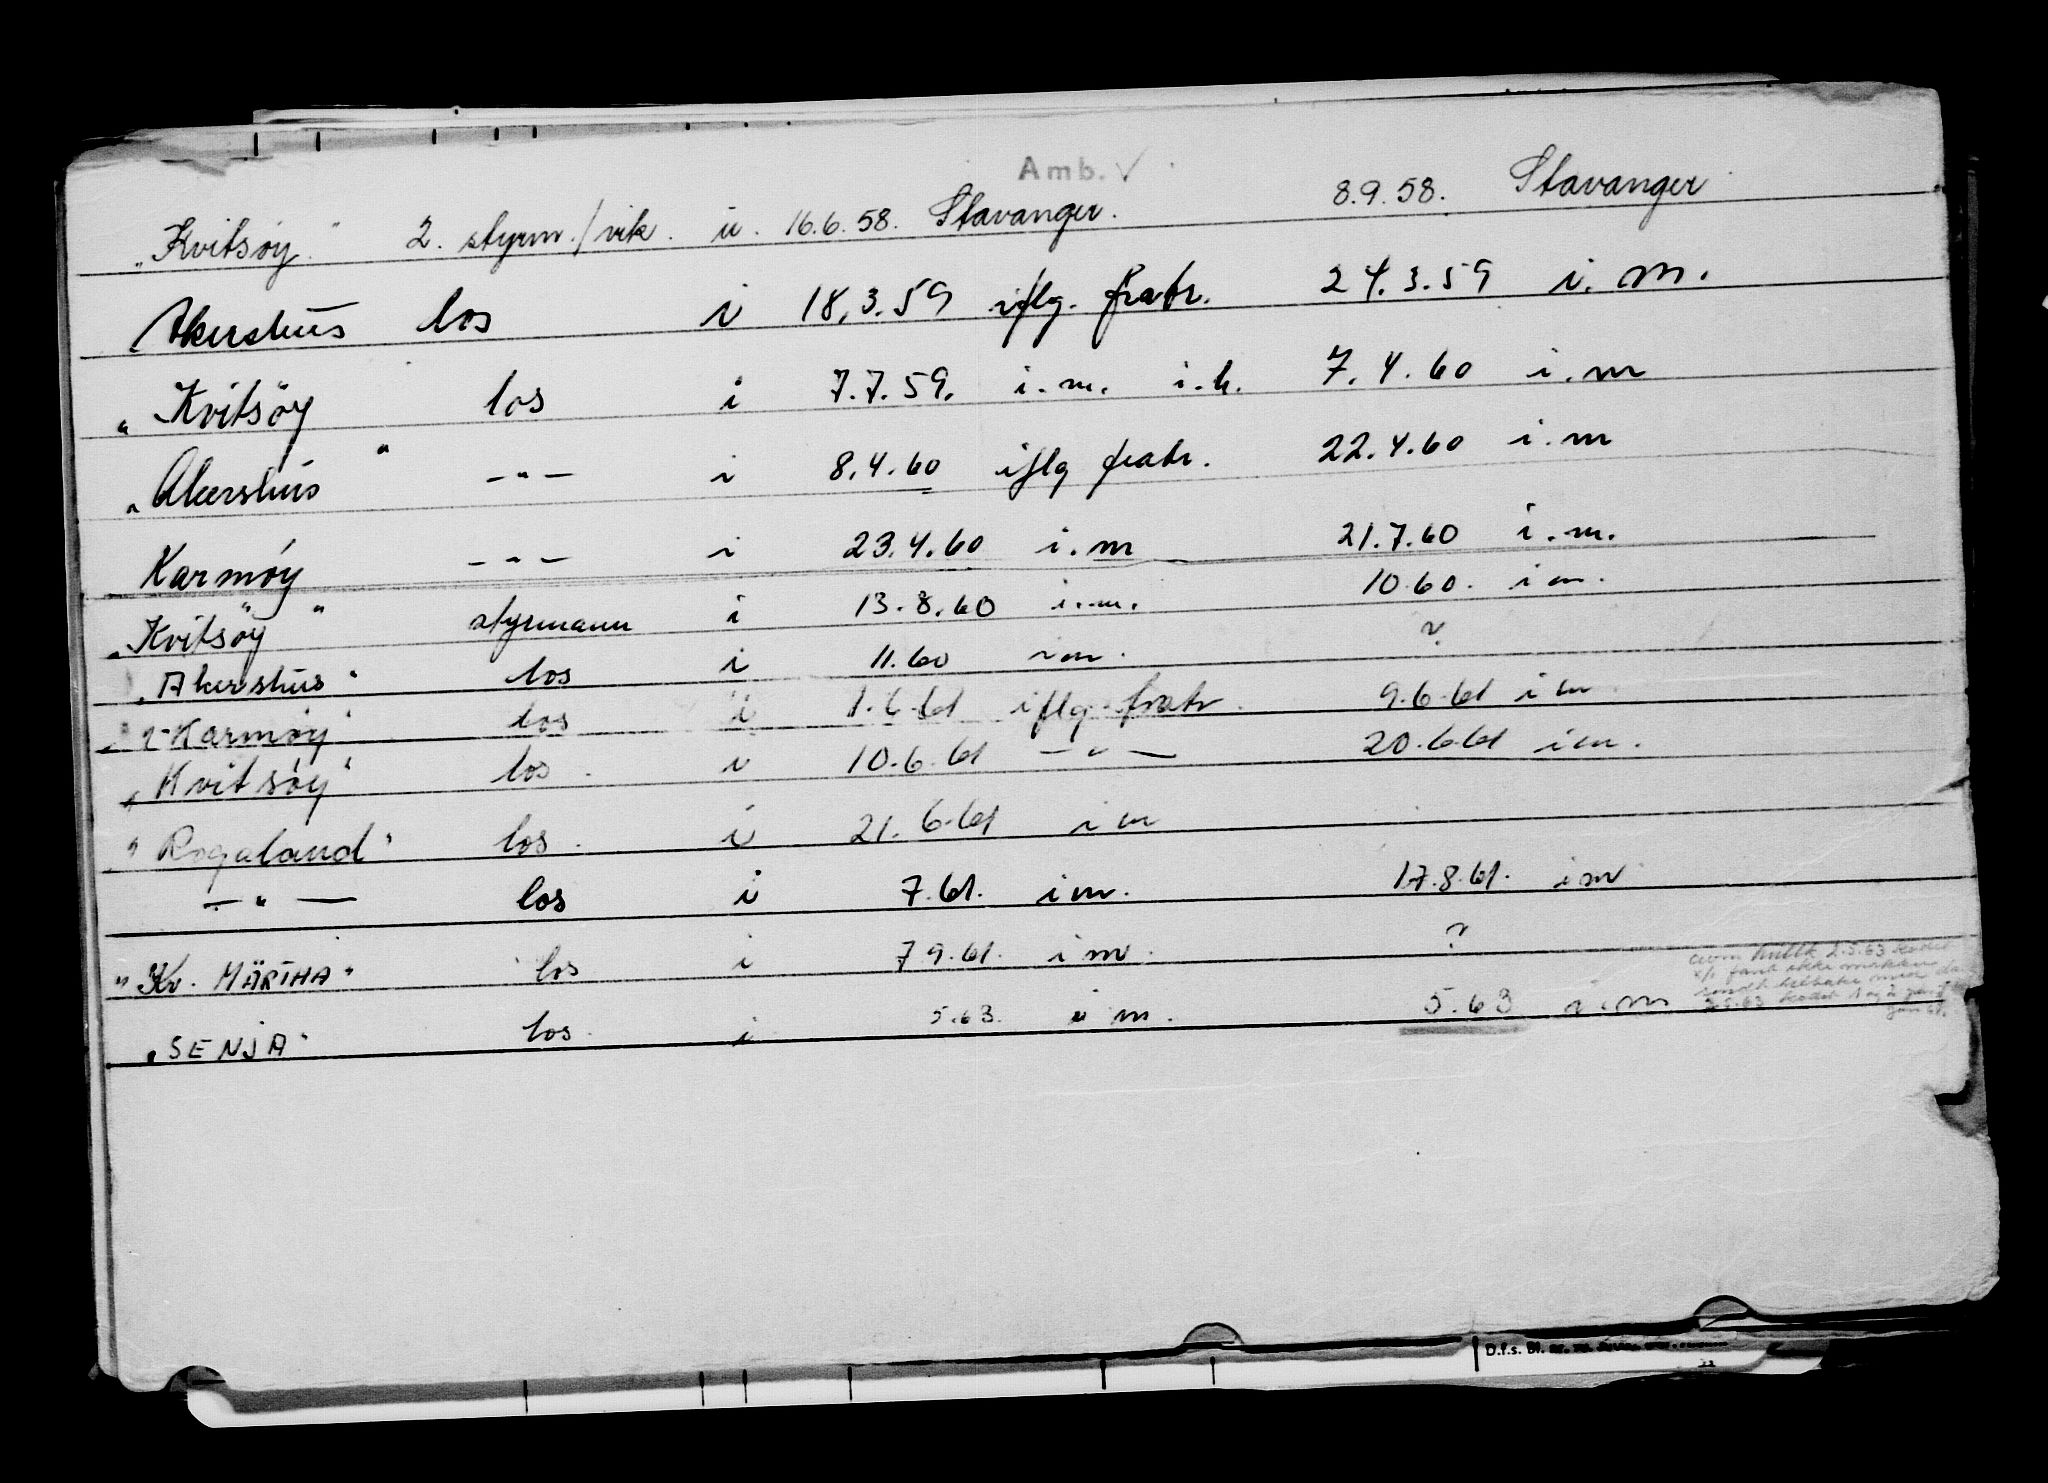 Amb. ✓
"Kvitsøy." 2. styrm./vik. u. 16.6.58. Stavanger. 8.9.58. Stavanger
Akershus los i 18.3.59 iflg. fratr. 24.3.59 i. m.
"Kvitsøy los i 7.7.59. i.m. i.h. 7.4.60 i.m
"Akershus" -"- i 8.4.60 iflg fratr. 22.4.60 i.m
Karmøy -"- i 23.4.60 i.m 21.7.60 i.m.
"Kvitsøy" styrmann i 13.8.60 i.m. 10.60. i m.
"Akershus" los i 11.60 i m. ?
"Karmøy" los i 1.6.61 iflg. fratr. 9.6.61 i m
"Kvitsøy" los. i 10.6.61 -"- 20.6.61 i m.
"Rogaland" los. i 21.6.61 i m
-"- los i 7.61. i m. 17.8.61. i m
"Kr. MÄRTHA" los i 7 9.61. i m. ?
"SENJA" los. i 5.63. i m. 5.63 i.m
2.5.63
fant ikke
D.f.s. Bl.